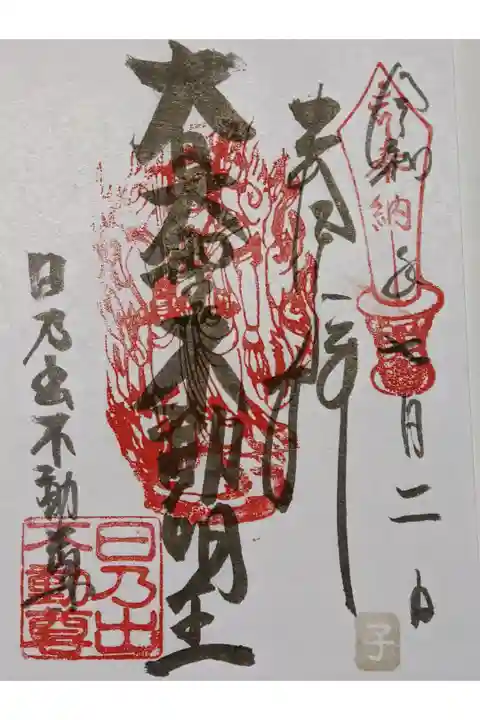 令和
納
年七月二日
大日大聖不動明王
日乃出不動尊
日乃出
不動尊
子